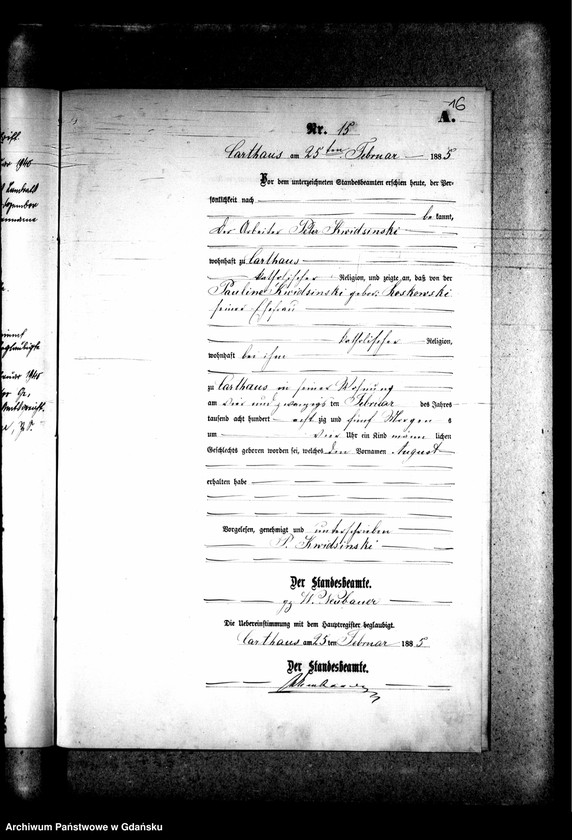 16
A.
Nr. 15
Carthaus am 25ten Februar 1885
Vor dem unterzeichneten Standesbeamten erschien heute, der Per-
sönlichkeit nach
be kannt,
Der Arbeiter Peter Kwidsinski
wohnhaft zu Carthaus
katholischer Religion, und zeigte an, daß von der
Pauline Kwidsinski gebor. Koskowski
seiner Ehefrau
katholischer Religion,
wohnhaft bei ihm
zu Carthaus in seiner Wohnung
am vier und zwanzigsten Februar des Jahres
tausend acht hundert achtzig und fünf Morgens
um Uhr ein Kind männlichen
Geschlechts geboren worden sei, welches den Vornamen August
erhalten habe
Vorgelesen, genehmigt und unterschrieben
P. Kwidsinski
Der Standesbeamte.
gz Neubauer
Die Uebereinstimmung mit dem Hauptregister beglaubigt.
Carthaus am 25ten Februar 1885
Der Standesbeamte.
Archiwum Państwowe w Gdańsku